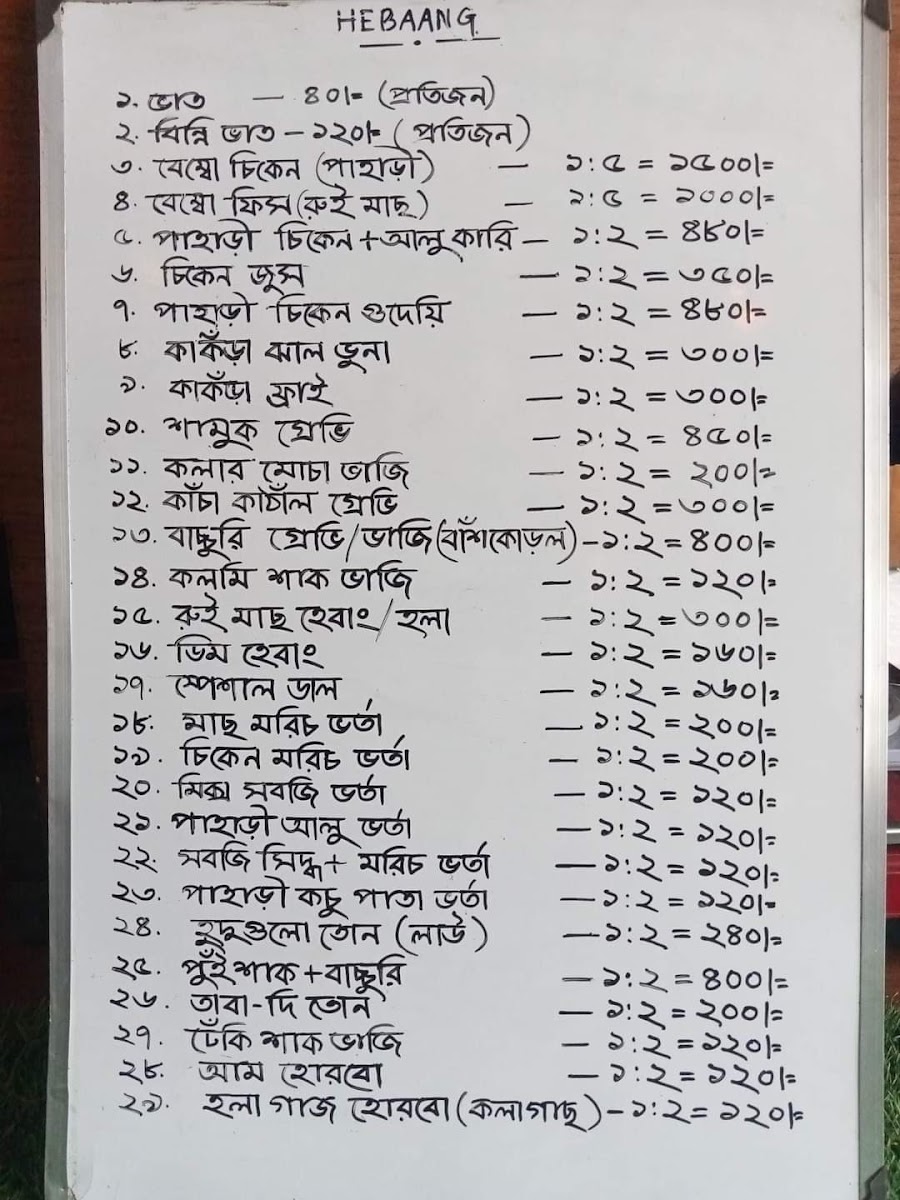 HEBAANG
১. ভাত — ৪০/= (প্রতিজন)
২. বিন্নি ভাত – ১২০/= (প্রতিজন)
৩. বেম্বো চিকেন (পাহাড়ী) — ১:৫ = ১৫০০/=
৪. বেম্বো ফিস (রুই মাছ) — ১:৫ = ১০০০/=
৫. পাহাড়ী চিকেন + আলু কারি — ১:২ = ৪৮০/=
৬. চিকেন জুস — ১:২ = ৩৫০/=
৭. পাহাড়ী চিকেন গুদেয়ি — ১:২ = ৪৮০/=
৮. কাকঁড়া ঝাল ভুনা — ১:২ = ৩০০/=
৯. কাকঁড়া ফ্রাই — ১:২ = ৩০০/=
১০. শামুক গ্রেভি — ১:২ = ৪৫০/=
১১. কলার মোচা ভাজি — ১:২ = ২০০/=
১২. কাঁচা কাঠাঁল গ্রেভি — ১:২ = ৩০০/=
১৩. বাচ্ছুরি গ্রেভি/ভাজি (বাঁশকোড়ল) – ১:২ = ৪০০/=
১৪. কলমি শাক ভাজি — ১:২ = ১২০/=
১৫. রুই মাছ হেবাং/হলা — ১:২ = ৩০০/=
১৬. ডিম হেবাং — ১:২ = ১৬০/=
১৭. স্পেশাল ডাল — ১:২ = ১৬০/=
১৮. মাছ মরিচ ভর্তা — ১:২ = ২০০/=
১৯. চিকেন মরিচ ভর্তা — ১:২ = ২০০/=
২০. মিক্স সবজি ভর্তা — ১:২ = ১২০/=
২১. পাহাড়ী আলু ভর্তা — ১:২ = ১২০/=
২২. সবজি সিদ্ধ + মরিচ ভর্তা — ১:২ = ১২০/=
২৩. পাহাড়ী কচু পাতা ভর্তা — ১:২ = ১২০/=
২৪. হুদুগুলো তোন (লাউ) — ১:২ = ২৪০/=
২৫. পুঁইশাক + বাচ্ছুরি — ১:২ = ৪০০/=
২৬. তাবা-দি তোন — ১:২ = ২০০/=
২৭. ঢেঁকি শাক ভাজি — ১:২ = ১২০/=
২৮. আম হোরবো — ১:২ = ১২০/=
২৯. হলা গাজ হোরবো (কলাগাছ) – ১:২ = ১২০/=